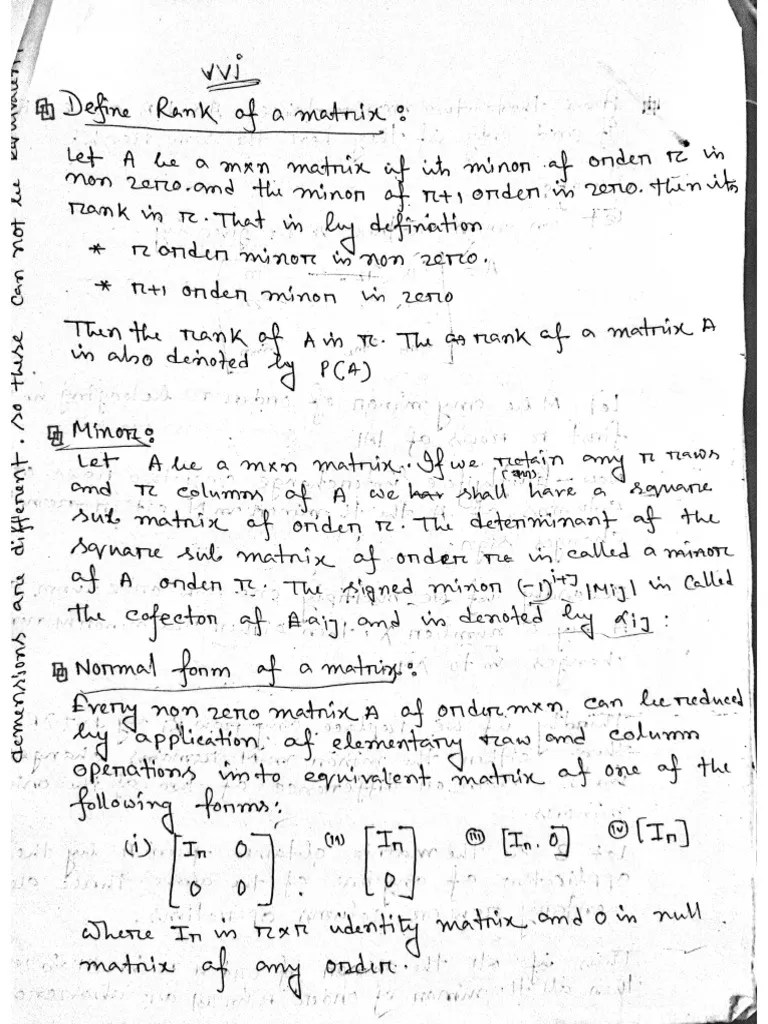 vvi
Define Rank of a matrix:
Let A be a m×n matrix if its minor of order r is
non zero. and the minor of r+1 order is zero. then its
rank is r. That is by defination
* r order minor is non zero.
* r+1 order minor is zero
Then the rank of A is r. The rank of a matrix A
is also denoted by P(A)
Minor:
Let A be a m×n matrix. If we retain any r raws
and r columns of A we shall have a square
sub matrix of order r. The determinant of the
square sub matrix of order r is called a minor
of A order r. The signed minor (-1)^{i+j} |Mij| is called
the cofector of aij, and is denoted by αij:
Normal form of a matrix:
Every non zero matrix A of order m×n can be reduced
by application of elementary raw and column
operations into equivalent matrix of one of the
following forms:
(i) [Ir 0
0 0]. (ii) [Ir
0] (iii) [Ir. 0] (iv) [Ir]
where Ir is r×r identity matrix and 0 is null
matrix of any order.
demensions are different. so these can not be equivalent.